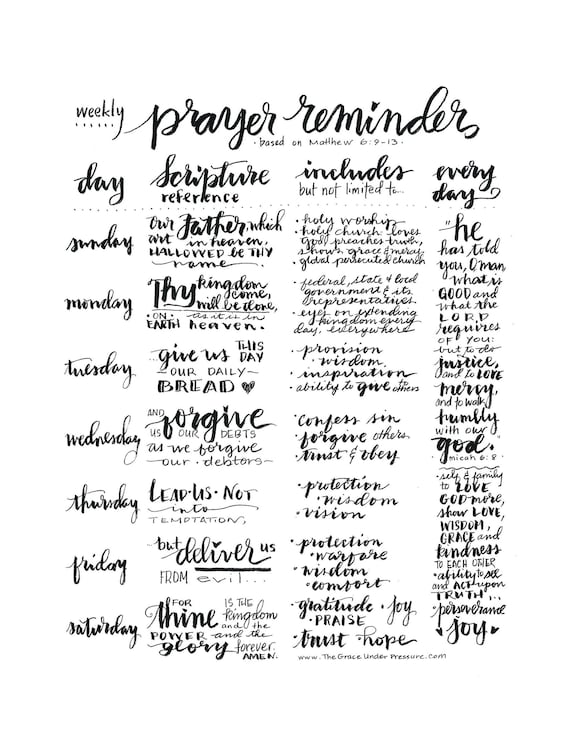 weekly prayer reminder
· based on Matthew 6:9-13 ·
day
Scripture
reference
includes
but not limited to...
every
day
sunday
our Father, which
art in heaven,
HALLOWED BE THY
name
· holy worship
· holy church loves
god, preaches truth,
shows grace & mercy
· global persecuted church
monday
Thy kingdom
come,
will be done,
· ON · as it is in
EARTH heaven.
· federal, state & local
government & its
representatives
· eyes on extending
kingdom every
day, everywhere
tuesday
give us THIS
DAY
OUR DAILY
BREAD
· provision
· wisdom
· inspiration
· ability to give to others
wednesday
AND forgive
US OUR DEBTS
as we forgive
our · debtors
· confess sin
· forgive others
· trust & obey
thursday
LEAD · US · NOT
into
TEMPTATION,
· protection
· wisdom
· vision
friday
but deliver us
FROM evil...
· protection
· warfare
· wisdom
· comfort
saturday
FOR thine IS THE
kingdom
and the
POWER and the
glory forever.
AMEN.
· gratitude · joy
· PRAISE
· trust · hope
"he
has told
you, O man,
what is
GOOD and
what the
LORD
requires
OF YOU:
but to do
justice,
and to LOVE
mercy,
and to walk
humbly
with our
god."
micah 6:8
· self & family
to LOVE
GOD more,
show LOVE,
WISDOM,
GRACE and
kindness
TO EACH OTHER
· ability to see
and ACT upon
TRUTH...
· perseverance
joy
www.TheGraceUnderPressure.com